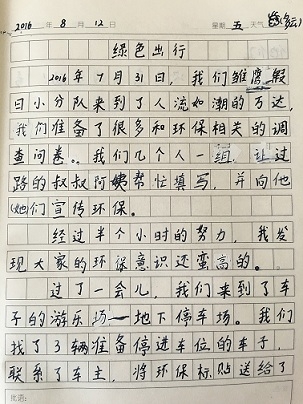 2016年8月12日 星期五天气多云
绿色出行
2016年7月31日，我们雏鹰假
日小分队来到了人流如潮的万达，
我们准备了很多和环保相关的调
查问卷。我们几个人一组，让过
路的叔叔阿姨帮忙填写，并向他
(她)们宣传环保。
经过半个小时的努力，我发
现大家的环保意识还蛮高的。
过了一会儿，我们来到了车
子的游乐场——地下停车场。我们
找了3辆准备停进车位的车子，
联系了车主，将环保标贴送给了
批语：